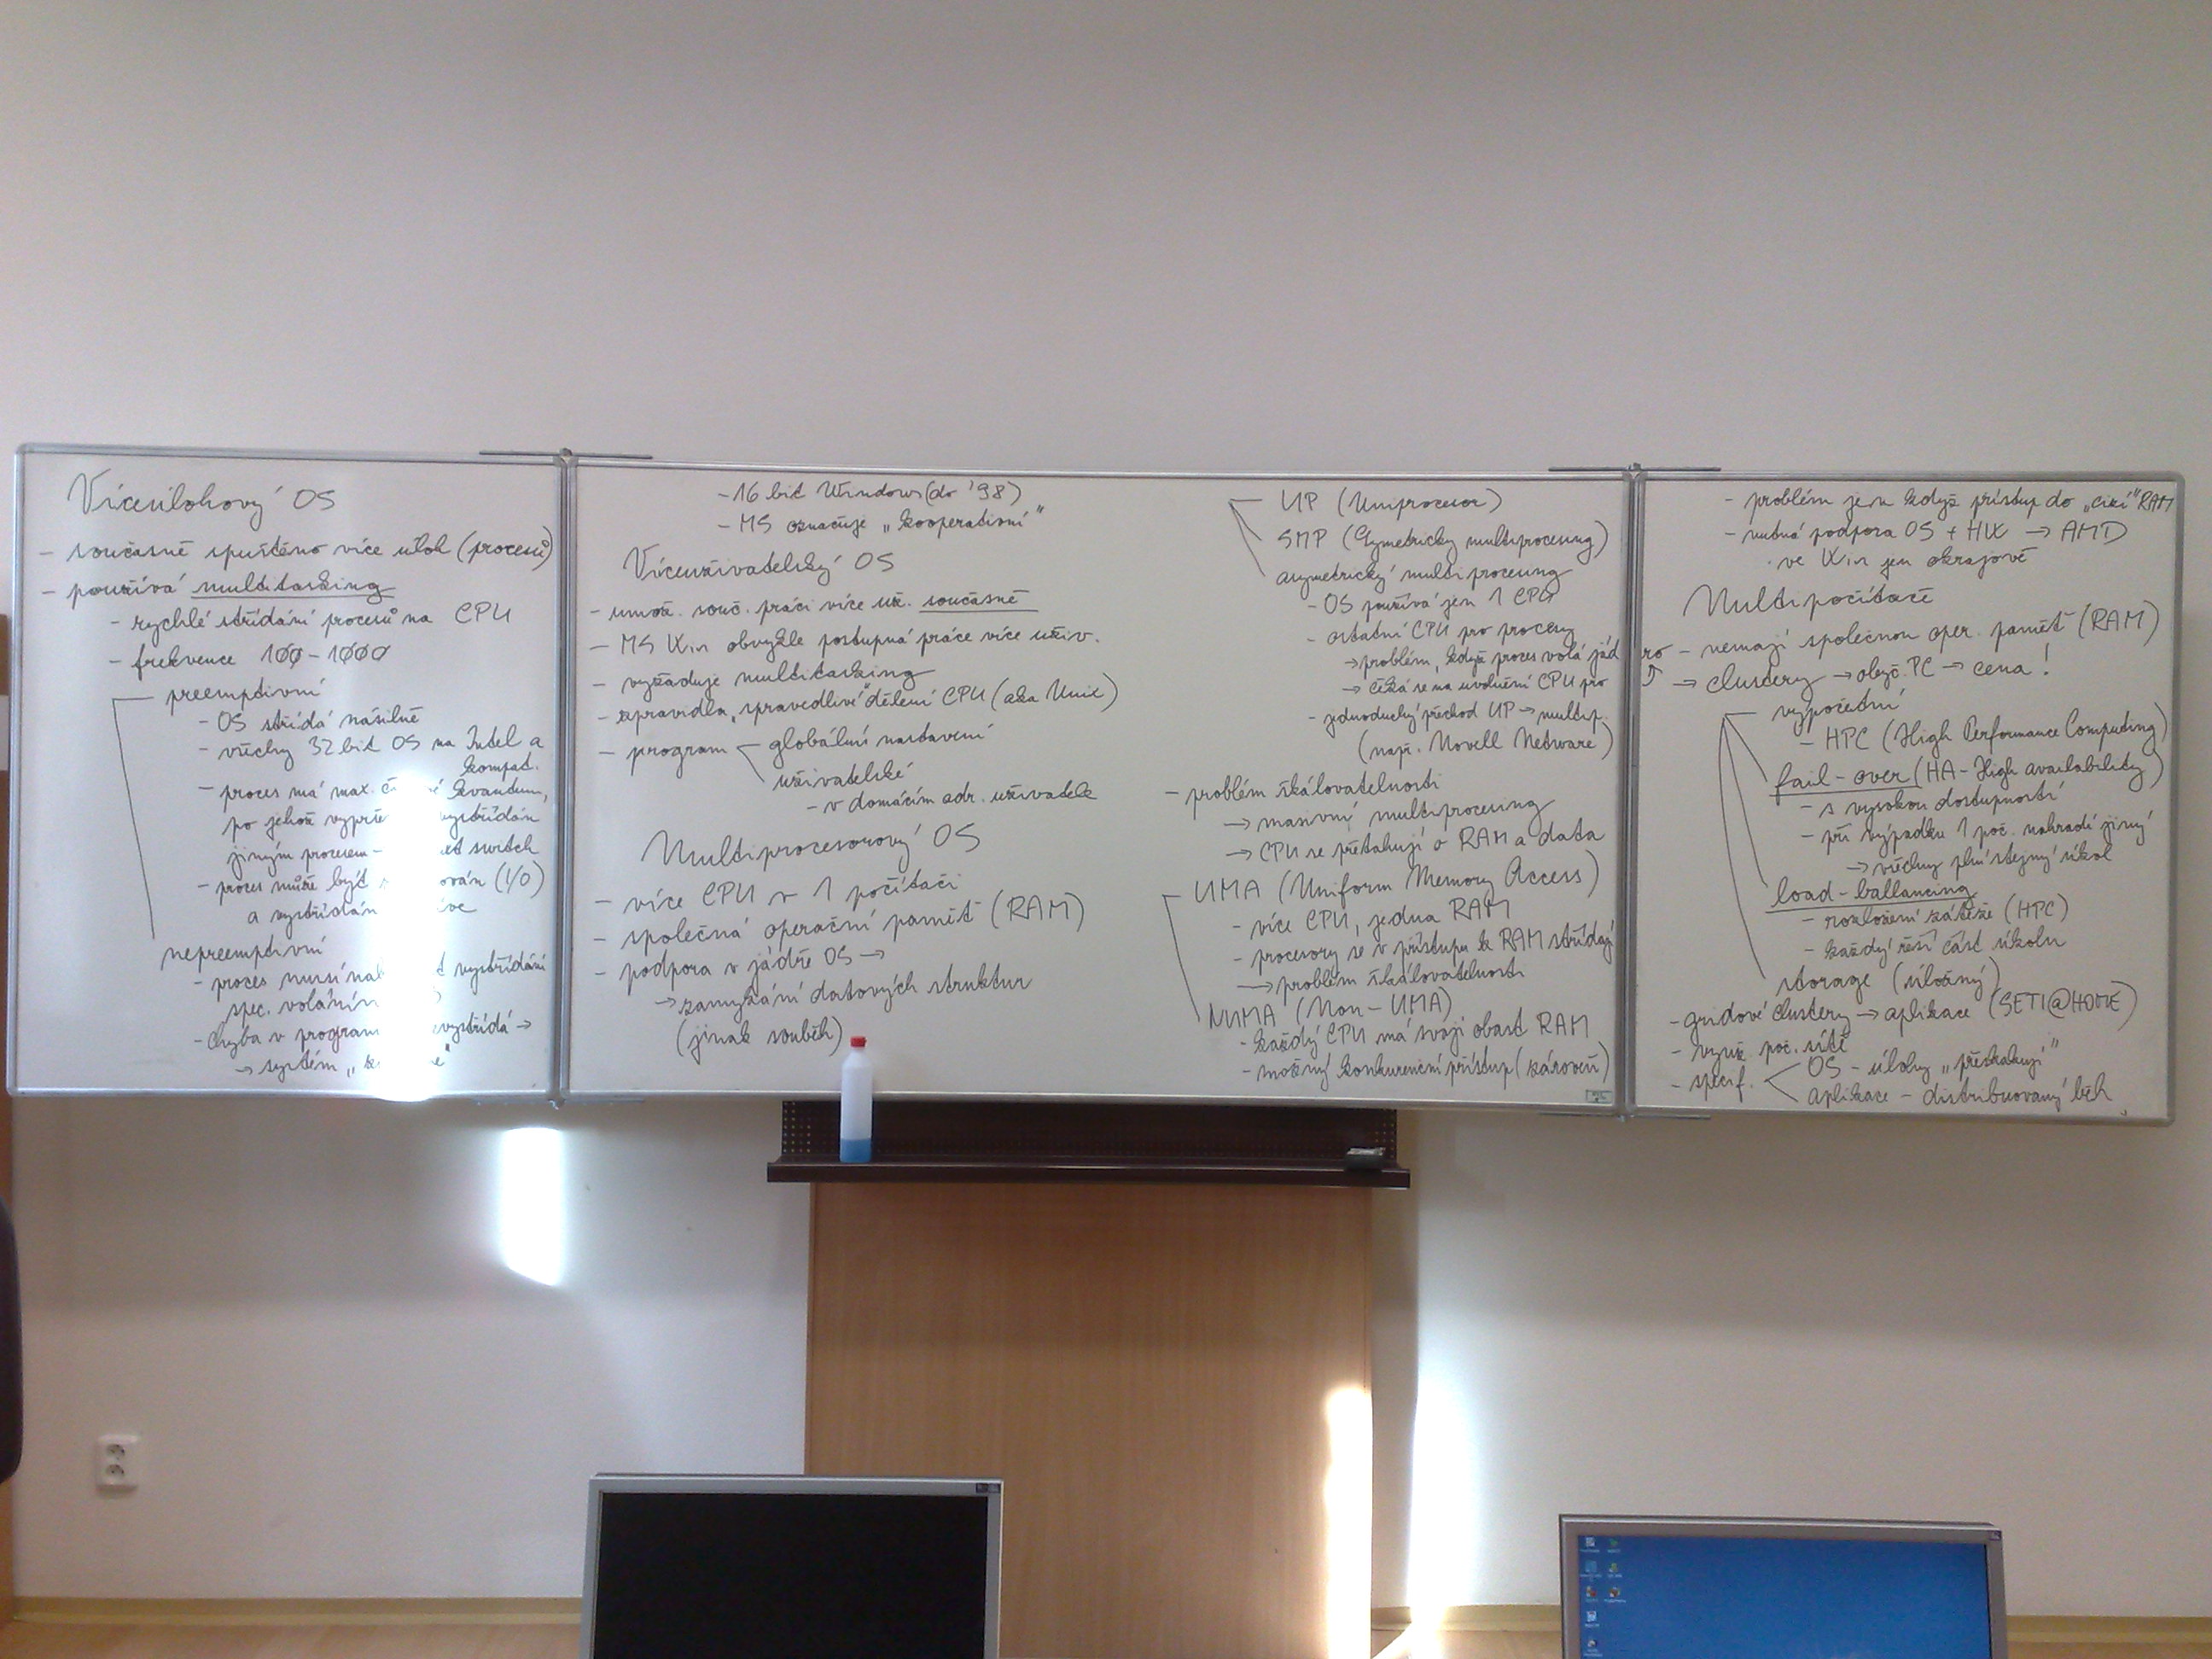 Víceúlohový OS
- současně spuštěno více úloh (procesů)
- používá multitasking
- rychlé střídání procesů na CPU
- frekvence 100-1000
preemptivní
- OS střídá násilně
- všechny 32 bit OS na Intel a
kompat.
- proces má max. kvantum,
po jehož vystřídán
jiným procesem - switch
- proces může být (I/O)
a vystřídán
nepreemptivní
- proces musí vystřídání
spec. voláním
- chyba v program →
→ systém „
- 16 bit Windows (do '98)
- MS označuje „kooperativní"
Víceuživatelský OS
- umož. souč. práci více už. současně
- MS Win obvykle postupná práce více uživ.
- vyžaduje multitasking
- zpravidla „spravedlivé" dělení CPU (aka Unix)
- program globální nastavení
uživatelské
- v domácím adr. uživatele
Multiprocesorový OS
- více CPU v 1 počítači
- společná operační paměť (RAM)
- podpora v jádře OS →
→ zamykání datových struktur
(jinak souběh)
UP (Uniprocesor)
SMP (Symetrický multiprocesing)
asymetrický multiprocesing
- OS používá jen 1 CPU
- ostatní CPU pro procesy
→ problém, když proces volá jádro
→ čeká se na uvolnění CPU pro ↑
- jednoduchý přechod UP → multip.
(např. Novell Netware)
- problém škálovatelnosti
→ masivní multiprocesing
→ CPU se přetahují o RAM a data
UMA (Uniform Memory Access)
- více CPU, jedna RAM
- procesory se v přístupu k RAM střídají
→ problém škálovatelnosti
NUMA (Non-UMA)
- každý CPU má svoji obast RAM
- možný konkurenční přístup (zároveň)
- problém jen když přístup do „cizí" RAM
- nutná podpora OS + HW → AMD
· ve Win jen okrajově
Multipočítače
- nemají společnou oper. paměť (RAM)
→ clustery → obyč. PC → cena!
výpočetní
- HPC (High Performance Computing)
fail-over (HA - High availability)
- s vysokou dostupností
- při výpadku 1 poč. nahradí jiný
→ všechny plní stejný úkol
load-ballancing
- rozložení zátěže (HPC)
- každý řeší část úkolu
storage (úložný)
- gridové clustery → aplikace (SETI@HOME)
- využ. poč. sítě
- specif. OS - úlohy „přeskakují"
aplikace - distribuovaný běh